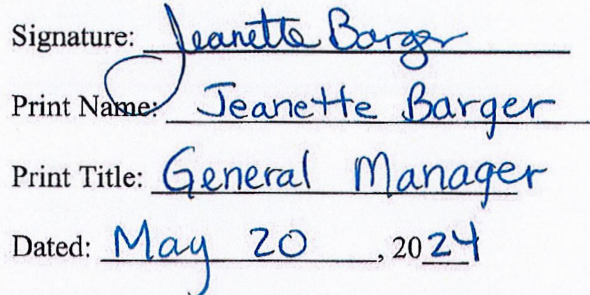 Signature: Jeanette Barger
Print Name: Jeanette Barger
Print Title: General Manager
Dated: May 20, 2024